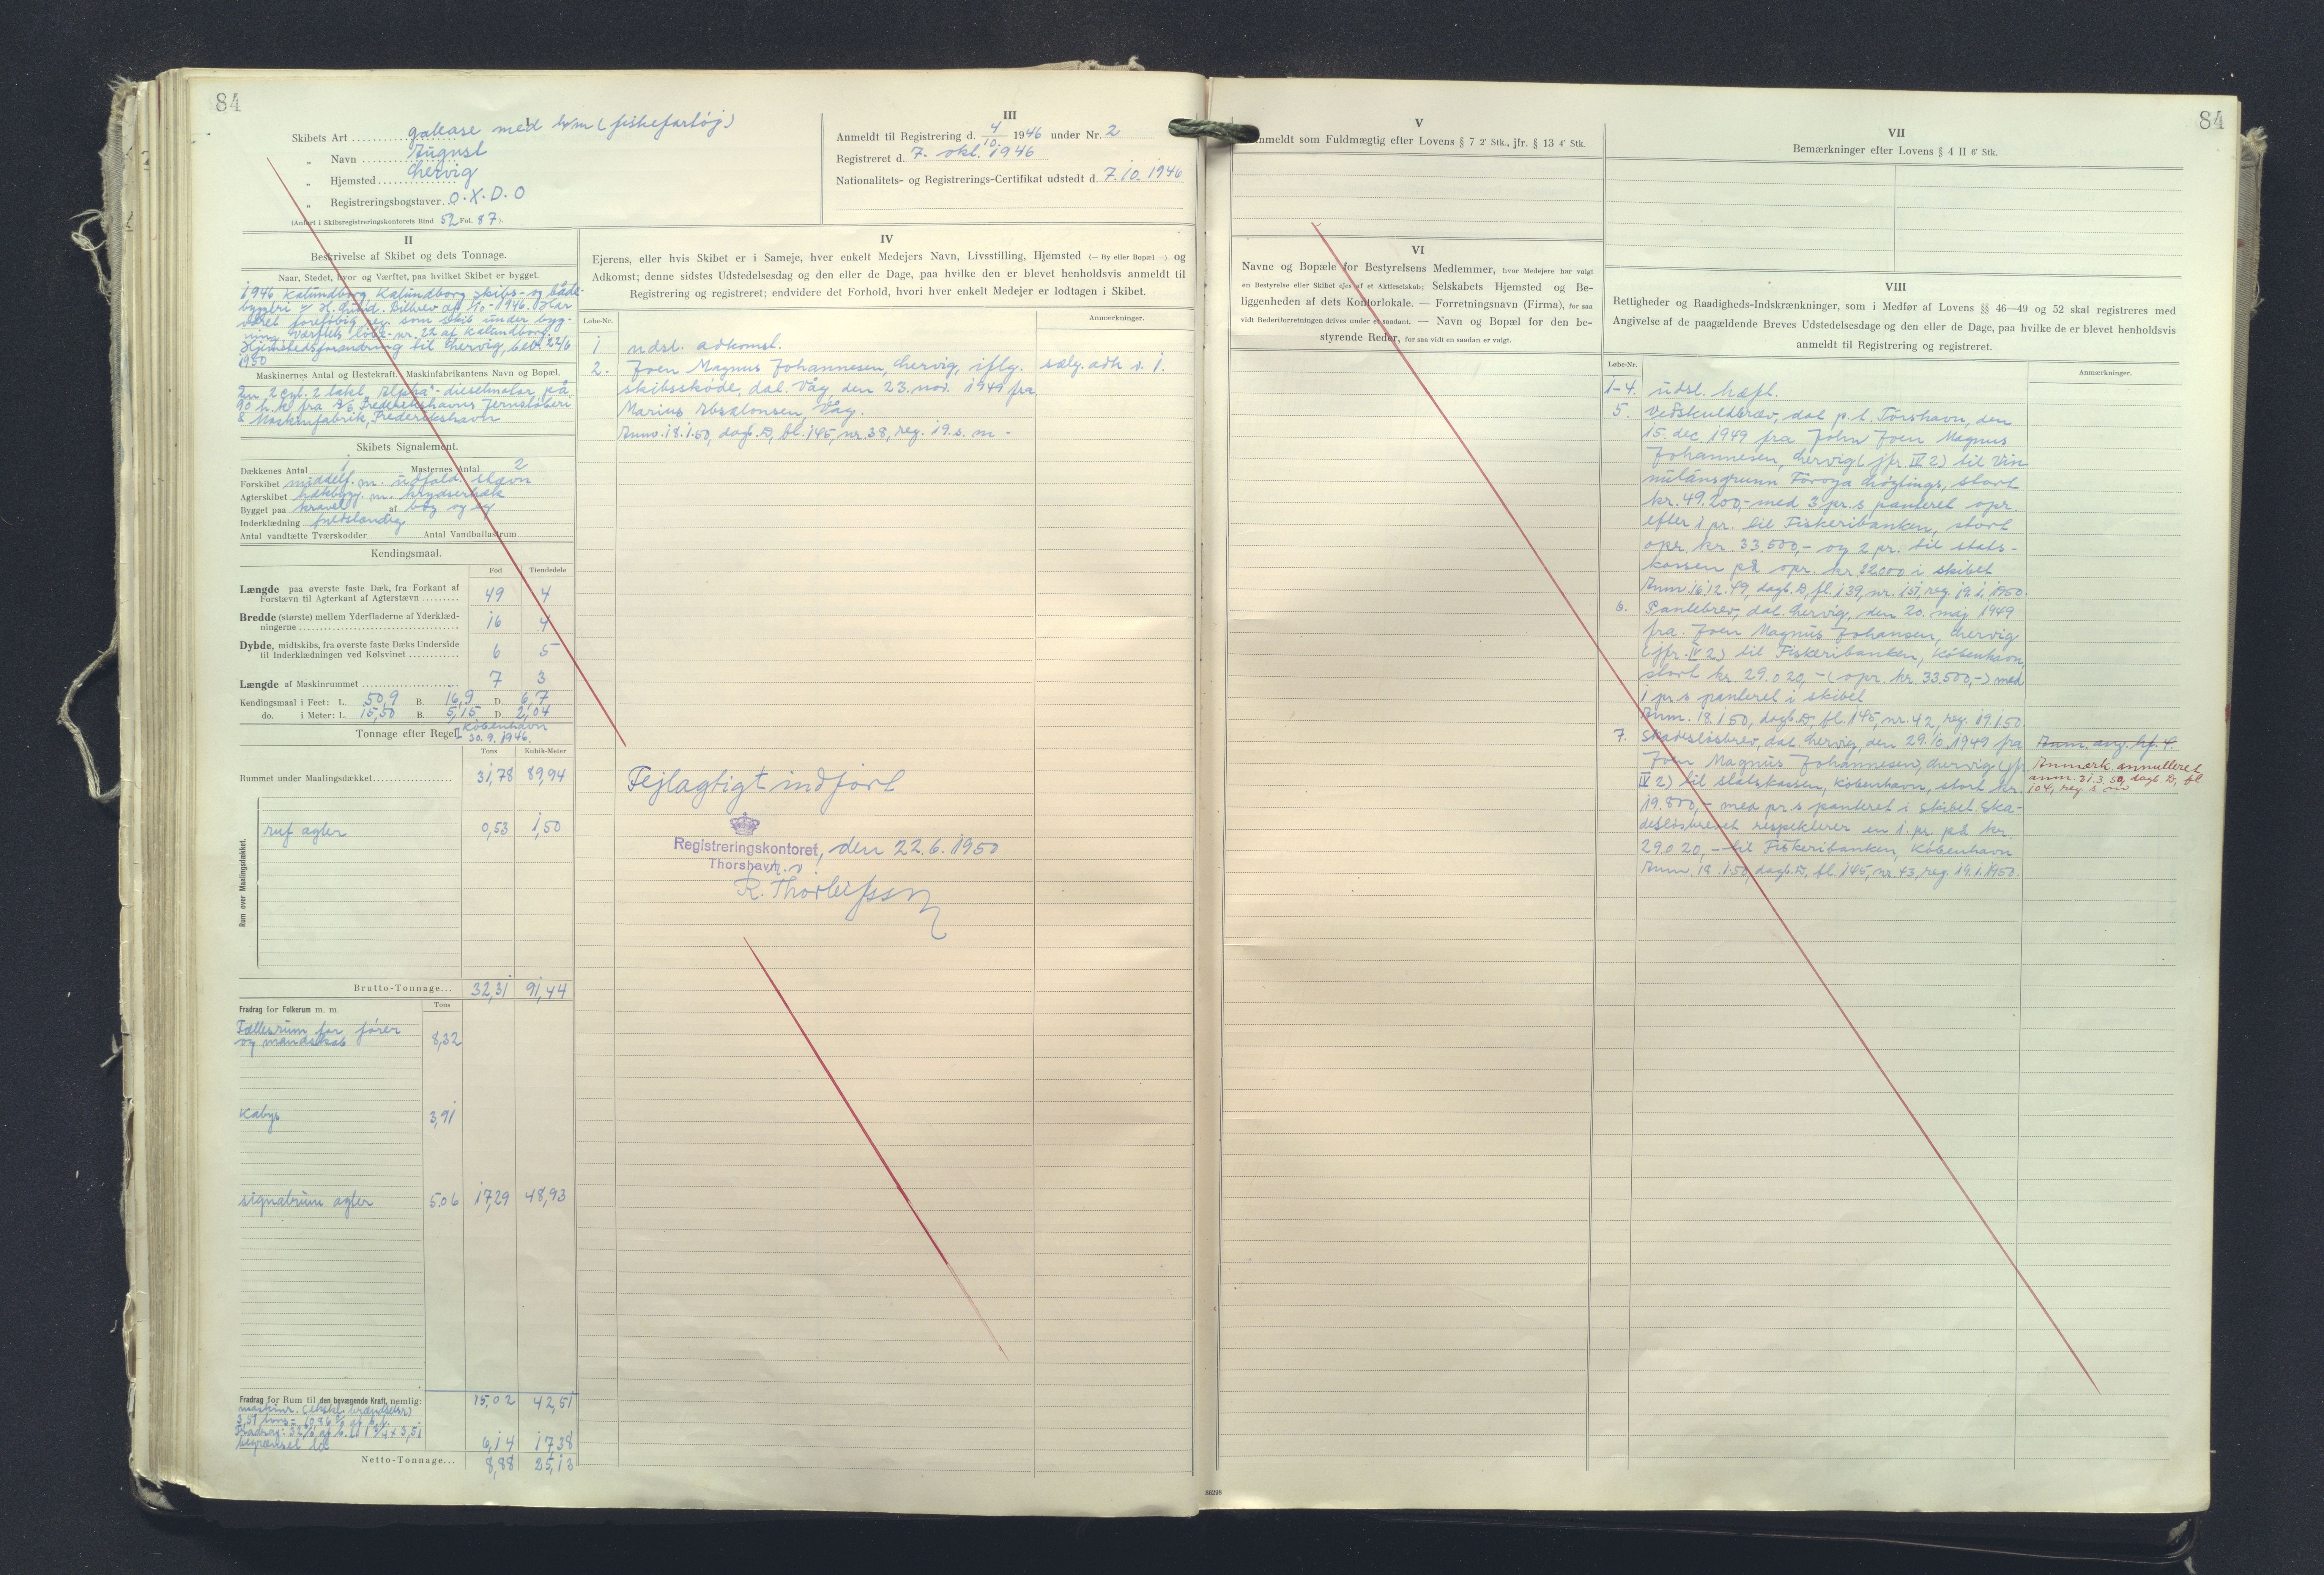 84
I
Skibets Art galease med h/m (fiskefartøj)
" Navn August
" Hjemsted Lervig
" Registreringsbogstaver O.X.D.O
(Anført i Skibsregistreringskontorets Bind 52 Fol. 87).
III
Anmeldt til Registrering d. 4/10 1946 under Nr. 2
Registreret d. 7. okt. 1946
Nationalitets- og Registrerings-Certifikat udstedt d. 7.10.1946
II
Beskrivelse af Skibet og dets Tonnage.
Naar, Stedet, hvor og Værftet, paa hvilket Skibet er bygget.
1946 Kalundborg Kalundborg skibs- og både-
byggeri v/ H. Bilbrev af 1946. Har
været foreløbig reg. som skib under byg-
ning værftets løbe-nr. 22 af Kalundborg.
Hjemstedsforandring til Lervig, bev. 22/6
1950
Maskinernes Antal og Hestekraft. Maskinfabrikantens Navn og Bopæl.
En 2 cyl. 2 takt "Alpha"-dieselmotor på
90 h.k. fra A/S Frederikshavns Jernstøberi
& Maskinfabrik, Frederikshavn
Skibets Signalement.
Dækkenes Antal 1 Masternes Antal 2
Forskibet middelf. m. udfald. stævn
Agterskibet hækbygg. m. krydserhæk
Bygget paa kravel af bøg og eg
Inderklædning fuldstændig
Antal vandtætte Tværskodder Antal Vandballastrum
Kendingsmaal.
Fod Tiendedele
Længde paa øverste faste Dæk, fra Forkant af
Forstævn til Agterkant af Agterstævn 49 4
Bredde (største) mellem Yderfladerne af Yderklæd-
ningerne 16 4
Dybde, midtskibs, fra øverste faste Dæks Underside
til Inderklædningen ved Kølsvinet 6 5
Længde af Maskinrummet 7 3
Kendingsmaal i Feet: L. 50,9 B. 16,9 D. 6,7
do. i Meter: L. 15,50 B. 5,15 D. 2,04
Tonnage efter Regel I København
30.9.1946.
Tons Kubik-Meter
Rummet under Maalingsdækket 31,78 89,94
Rum over Maalingsdækket.
ruf agter 0,53 1,50
Brutto-Tonnage... 32,31 91,44
Fradrag for Folkerum m. m. Tons
Fællesrum for fører
og mandskab 8,32
Kabys 3,91
signalrum agter 5.06 17,29 48,93
15,02 42,51
Fradrag for Rum til den bevægende Kraft, nemlig:
maskinr. (ekskl. brændselsr)
3,51 tons = 10,86 % af b.t.
Fradrag: 32% af b.t. 1 3/4 x 3,51
begrænset til 6,14 17,38
Netto-Tonnage... 8,88 25,13
IV
Ejerens, eller hvis Skibet er i Sameje, hver enkelt Medejers Navn, Livsstilling, Hjemsted (— By eller Bopæl —) og
Adkomst; denne sidstes Udstedelsesdag og den eller de Dage, paa hvilke den er blevet henholdsvis anmeldt til
Registrering og registreret; endvidere det Forhold, hvori hver enkelt Medejer er lodtagen i Skibet.
Løbe-Nr. Anmærkninger.
1 udsl. adkomst.
2. Joen Magnus Johannesen, Lervig, iflg. sælg. adk v. 1.
skibsskøde, dat. Våg den 23. nov. 1949 fra
Marius Absalonsen, Våg.
Anm. 18.1.50, dagb. D, fl. 145, nr. 38, reg. 19. s. m -
Fejlagtigt indført
Registreringskontoret, den 22.6.1950
Thorshavn
R. Thorleifsson
84
V
Anmeldt som Fuldmægtig efter Lovens § 7 2' Stk., jfr. § 13 4' Stk.
VI
Navne og Bopæle for Bestyrelsens Medlemmer, hvor Medejere har valgt
en Bestyrelse eller Skibet ejes af et Aktieselskab; Selskabets Hjemsted og Be-
liggenheden af dets Kontorlokale. — Forretningsnavn (Firma), for saa
vidt Rederiforretningen drives under et saadant. — Navn og Bopæl for den be-
styrende Reder, for saa vidt en saadan er valgt.
VII
Bemærkninger efter Lovens § 4 II 6' Stk.
VIII
Rettigheder og Raadigheds-Indskrænkninger, som i Medfør af Lovens §§ 46—49 og 52 skal registreres med
Angivelse af de paagældende Breves Udstedelsesdag og den eller de Dage, paa hvilke de er blevet henholdsvis
anmeldt til Registrering og registreret.
Løbe-Nr. Anmærkninger.
1-4. udsl. hæft.
5. Veðskuldbræv, dat p.t. Tórshavn, den
15. dec. 1949 fra John Joen Magnus
Johannesen, Lervig (jfr. IV 2) til Vin
nulánsgrunn Føroya Løgtings, stort
kr. 49.200,- med 3 pr.s panteret opr.
efter 1 pr. til Fiskeribanken, stort
opr. kr. 33.500,- og 2 pr. til stats-
kassen på opr. kr. 22.000 i skibet
Anm 16.12.49, dagb. D, fl. 139, nr. 151, reg. 19.1.1950
6. Pantebrev, dat. Lervig, den 20. maj 1949
fra Joen Magnus Johansen, Lervig
(jfr. IV 2) til Fiskeribanken, København,
stort kr. 29.020,- (opr. kr. 33.500,-) med
1 pr.s panteret i skibet
Anm. 18.1.50, dagb. D, fl. 145, nr. 42, reg. 19.1.50
7. Skadesløsbrev, dat. Lervig, den 29.10.1949 fra Anm. ang. hf. 4.
Joen Magnus Johannesen, Lervig (jfr. Anmærk. annulleret
IV 2) til statskassen, København, stort kr. anm. 31.3.50, dagb. D, fl
19.800,- med pr.s panteret i skibet. Ska- 104, reg s m
desløsbrevet respekterer en 1. pr. på kr.
29.020,- til Fiskeribanken, København
Anm. 18.1.50, dagb. D, fl. 145, nr. 43, reg. 19.1.1950.